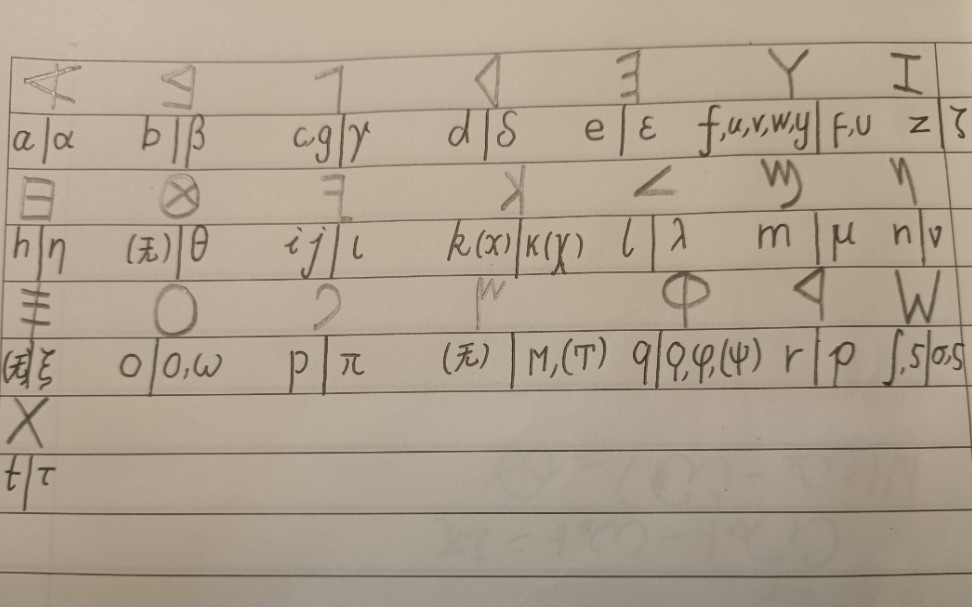 𐤀 𐤁 𐤂 𐤃 𐤄 𐤅 𐤆
a|α b|β c,g|γ d|δ e|ε f,u,v,w,y|ϝ,υ z|ζ
𐤇 𐤈 𐤉 𐤊 𐤋 𐤌 𐤍
h|η (无)|θ i j|ι k(x)|κ(χ) l|λ m|μ n|ν
𐤎 𐤏 𐤐 𐤑 𐤒 𐤓 𐤔
(无)|ξ o|ο,ω p|π (无)|Ϻ,(Ͳ) q|ϙ,φ,(ψ) r|ρ ʃ,s|σ,ς
𐤕
t|τ